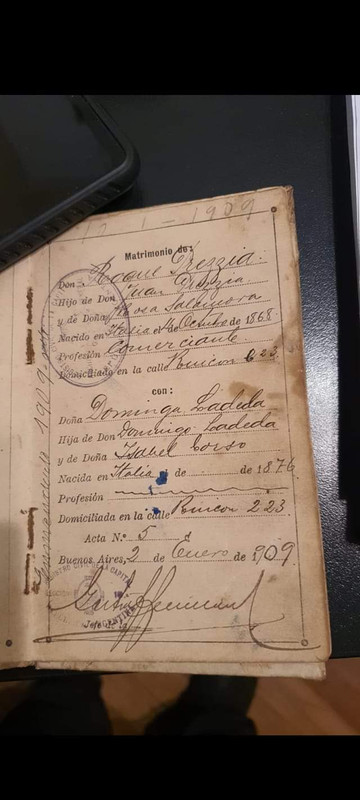 12-1-1909
Matrimonio de:
Don Roque Grezzia.
Hijo de Don Juan Grezzia
y de Doña Rosa
Nacido en Italia 4 de Octubre de 1868
Profesión Comerciante
Domiciliado en la calle Rincon 623
con:
Doña Dominga Ladeda
Hija de Don Domingo Ladeda
y de Doña Isabel Corso
Nacida en Italia de de 1876
Profesión
Domiciliada en la calle Rincon 223
Acta N.º 5
Buenos Aires, 2 de Enero de 1909
Jefe
1909